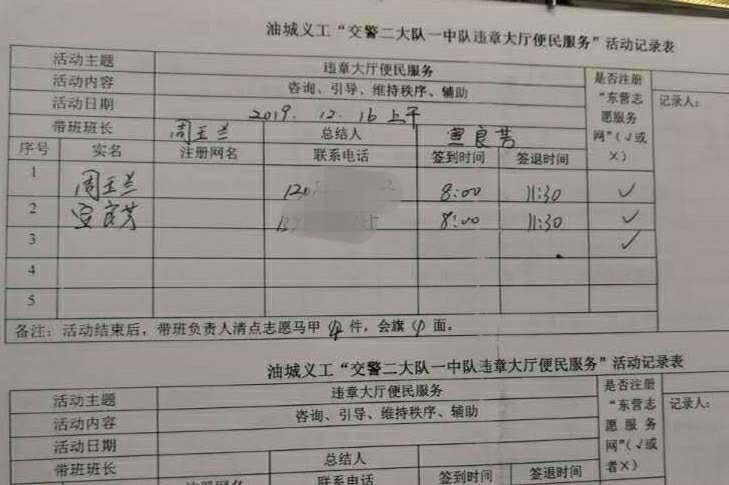 油城义工“交警二大队一中队违章大厅便民服务”活动记录表
活动主题 违章大厅便民服务 是否注册“东营志愿服务网”(√或×) 记录人:
活动内容 咨询、引导、维持秩序、辅助
活动日期 2019. 12. 16 上午
带班班长 周玉兰 总结人 良芳
序号 实名 注册网名 联系电话 签到时间 签退时间
1 周玉兰 8:00 11:30 √
2 良芳 8:00 11:30 √
3 √
4
5
备注:活动结束后,带班负责人清点志愿马甲 件,会旗 面。
油城义工“交警二大队一中队违章大厅便民服务”活动记录表
活动主题 违章大厅便民服务 是否注册“东营志愿服务网”(√或者×) 记录人:
活动内容 咨询、引导、维持秩序、辅助
活动日期
带班班长 总结人
注册网名 联系电话 签到时间 签退时间